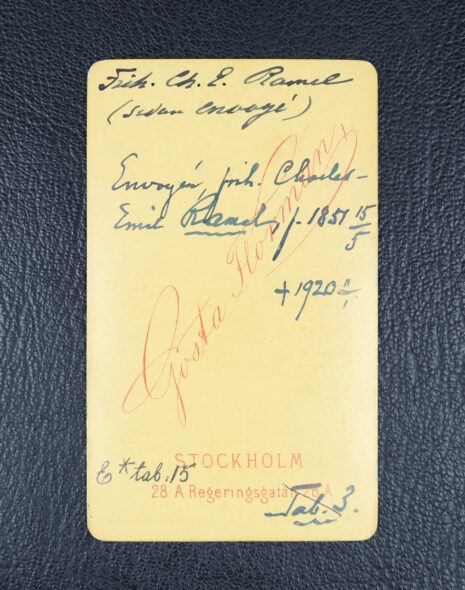 Frih. Ch. E. Ramel
(sedan envoyé)
Envoyén, frih. Charles-
Emil Ramel, f. 1851 15/5
+ 1920
Gösta Florman
STOCKHOLM
E * tab. 15
28 A Regeringsgatan 28 A
Tab. 3.